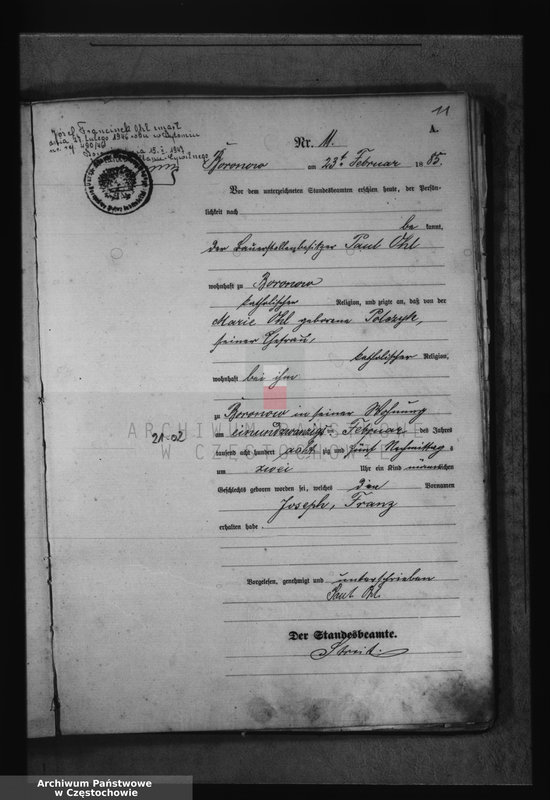 11
A.
Józef Franciszek Ohl zmarł
dnia 27 lutego 1946 roku w Bytomiu
nr. rej. 490/46
dnia 15.I.1947
Stanu Cywilnego
Nr. 11.
Boronow am 23t. Februar 1885.
Vor dem unterzeichneten Standesbeamten erschien heute, der Persön-
lichkeit nach
be kannt,
der Bauerstellenbesitzer Paul Ohl
wohnhaft zu Boronow
katholischer Religion, und zeigte an, daß von der
Marie Ohl geborene Polczyk,
seiner Ehefrau,
katholischer Religion,
wohnhaft bei ihm
zu Boronow in seiner Wohnung
am einundzwanzigsten Februar des Jahres
tausend acht hundert acht zig und fünf Nachmittag s
um zwei Uhr ein Kind männlichen
Geschlechts geboren worden sei, welches den Vornamen
Joseph, Franz
erhalten habe.
Vorgelesen, genehmigt und unterschrieben
Paul Ohl.
Der Standesbeamte.
Streit.
21-02
ARCHIWUM PAŃSTWOWE
W CZĘSTOCHOWIE
Archiwum Państwowe
w Częstochowie